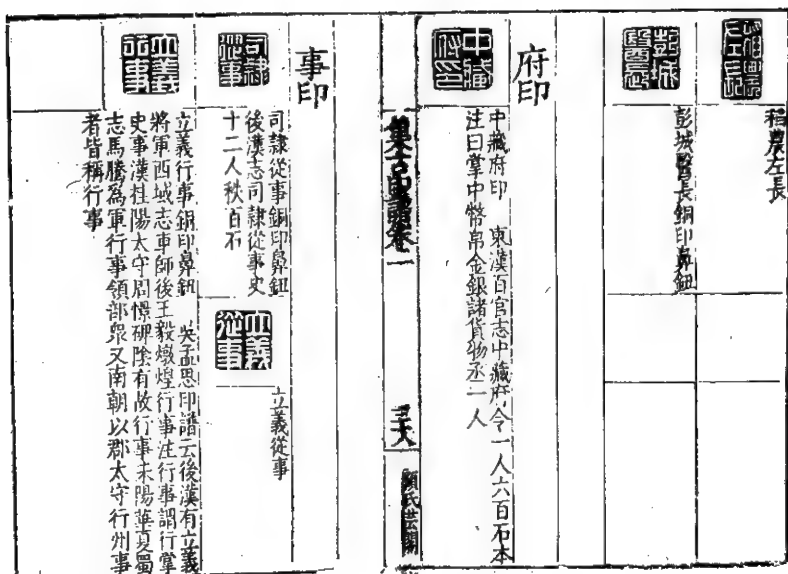 稻農左長
稻農左長
彭城醫長
彭城醫長銅印鼻鈕
府印
中藏府印
中藏府印　東漢百官志中藏府令一人六百石本
注曰掌中幣帛金銀諸貨物丞二人
集古印譜卷一
三六
顧氏芸閣
事印
司隸從事
司隸從事銅印鼻鈕
後漢志司隸從事史
十二人秩百石
立義從事
立義從事
立義行事
立義行事銅印鼻鈕　吳孟思印譜云後漢有立義
將軍西域志車師後王毅燉煌行事注行事謂行掌
史事漢桂陽太守周憬碑陰有故行事耒陽華夏蜀
志馬騰為軍行事領部眾又南朝以郡太守行州事
者皆稱行事